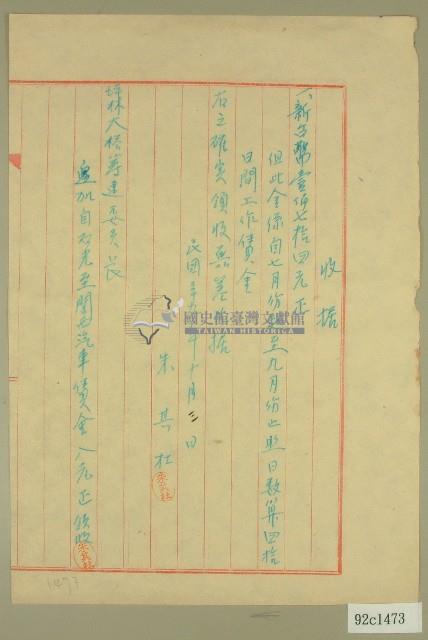 收据
一、新台幣壹佰七拾四元正
但此金係自七月份起至九月份止照日数算四拾
日間工作賃金
右正確实領收無差此据
民國 年十月三日
朱 其 杜
坪林大橋筹建委員長
並加自石 至開 汽車賃金八元正領收
國史館臺灣文獻館
TAIWAN HISTORICA
1473
92c1473